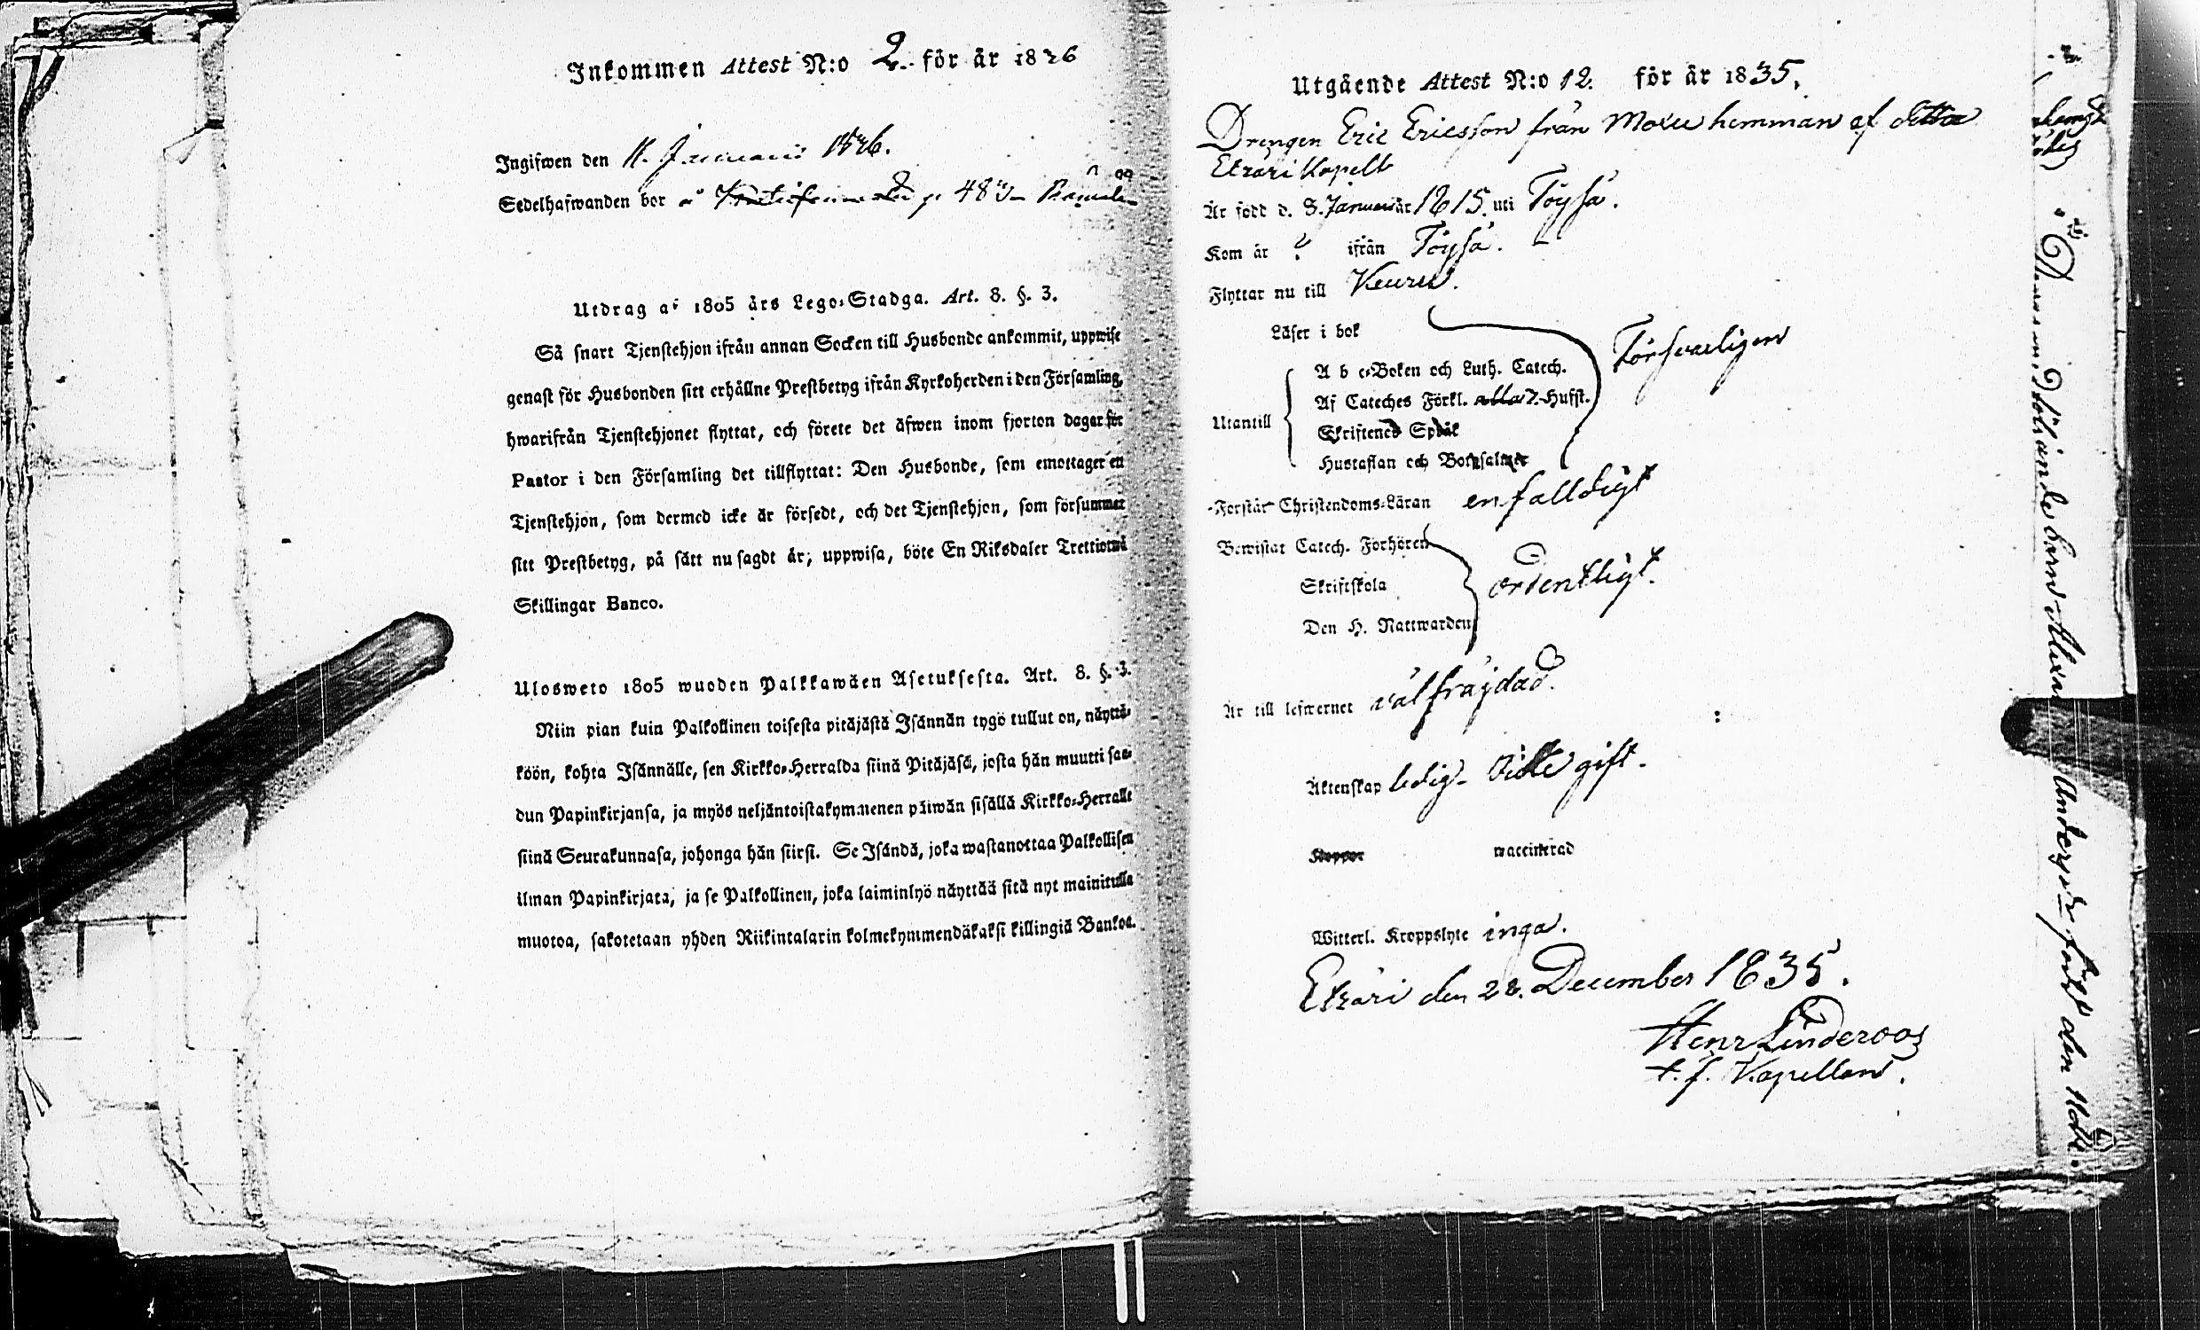 Inkommen Attest N:o 2. för år 1836
Ingifwen den 11. Januarii 1836.
Sedelhafwanden bor å p. 483
Utdrag af 1805 års Lego-Stadga. Art. 8. §. 3.
Så snart Tjenstehjon ifrån annan Socken till Husbonde ankommit, uppwise
genast för Husbonden sitt erhållne Prestbetyg ifrån Kyrkoherden i den Församling,
hwarifrån Tjenstehjonet flyttat, och förete det äfwen inom fjorton dagar för
Pastor i den Församling det tillflyttat: Den Husbonde, som emottager en
Tjenstehjon, som dermed icke är försedt, och det Tjenstehjon, som försummar
sitt Prestbetyg, på sätt nu sagdt är, uppwisa, böte En Riksdaler Trettiotwå
Skillingar Banco.
Ulosweto 1805 wuoden Palkkawäen Asetuksesta. Art. 8. §. 3.
Niin pian kuin Palkollinen toisesta pitäjästä Isännän tygö tullut on, näyttä-
köön, kohta Isännälle, sen Kirkko-Herralda siinä Pitäjäsä, josta hän muutti saa-
dun Papinkirjansa, ja myös neljäntoistakymmenen päiwän sisällä Kirkko-Herralle
siinä Seurakunnasa, johonga hän siirsi. Se Isändä, joka wastanottaa Palkollisen
ilman Papinkirjata, ja se Palkollinen, joka laiminlyö näyttää sitä nyt mainitulla
muotoa, sakotetaan yhden Riikintalarin kolmekymmendäkaksi killingiä Bankoa.
Utgående Attest N:o 12. för år 1835.
Drengen Eric Ericsson från hemman af detta
Etzäri Kapell
Är född d. 8. Januari år 1815. uti Töysä.
Kom år ? ifrån Töysä.
Flyttar nu till Keuru.
Läser i bok
Försvarligen
A b c-Boken och Luth. Catech.
Af Cateches Förkl. alla 7. Hufst.
Utantill
Skriftenes Språk
Hustaflan och Botpsalmer
Förstår Christendoms-Läran enfalldigt
Bewistat Catech. Förhören
Skriftskola ordentligt.
Den H. Nattwarden
Är till lefwernet välfräjdad.
Äktenskap ledig – gift.
Koppor waccinerad
Witterl. Kroppslyte inga.
Etzäri den 28. December 1835.
Henr Linderoos
t. f. Kapellan.
född den